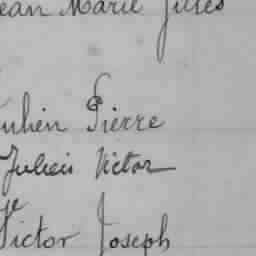 Jean Marie Gilles
Julien Pierre
Julien Victor
Victor Joseph